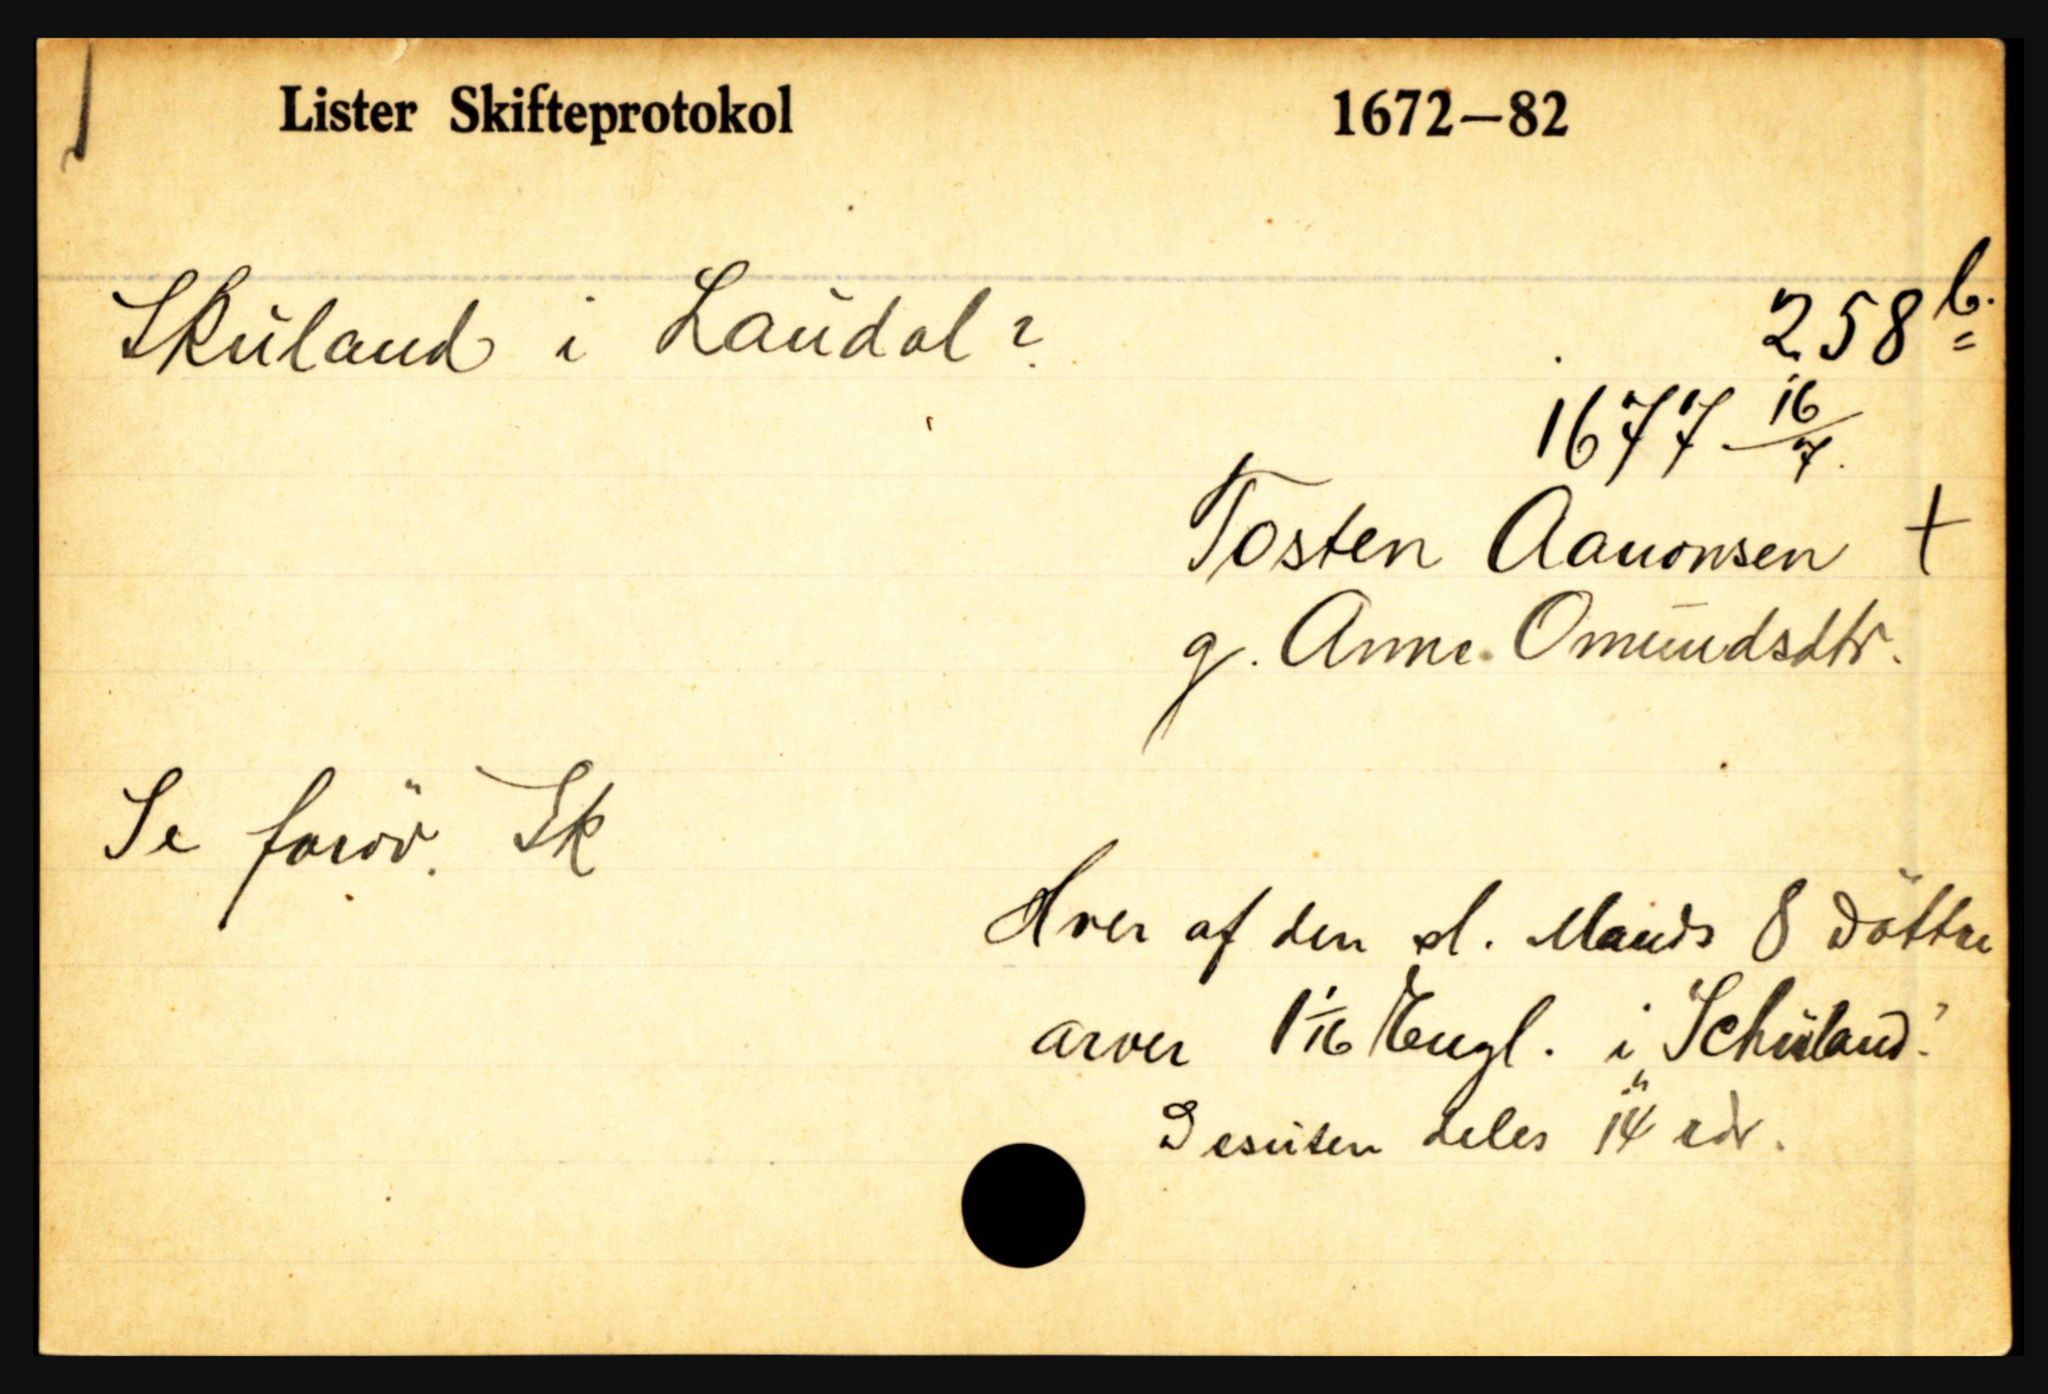 Lister Skifteprotokol 1672—82
Skuland i Laudal? 258 b.
1677 16/7.
Tosten Aanonsen +
g. Anne Omundsdtr.
Se foröv. Sk
Hver af den sl. Mands 8 döttre
arver 1 1/16 Engl. i „Schuland."
Desuten deles 14 rdr.